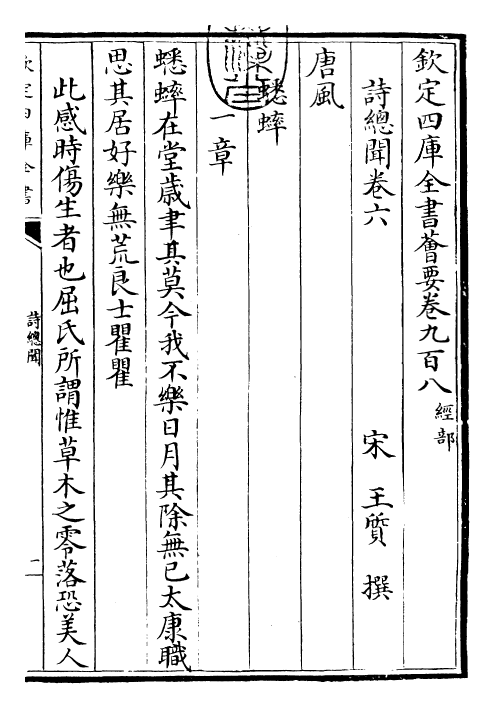 欽定四庫全書薈要卷九百八 經部
詩總聞卷六 宋 王質 撰
唐風
蟋蟀
一章
蟋蟀在堂歳聿其莫今我不樂日月其除無已太康職
思其居好樂無荒良士瞿瞿
此感時傷生者也屈氏所謂惟草木之零落恐美人
欽定四庫全書
詩總聞